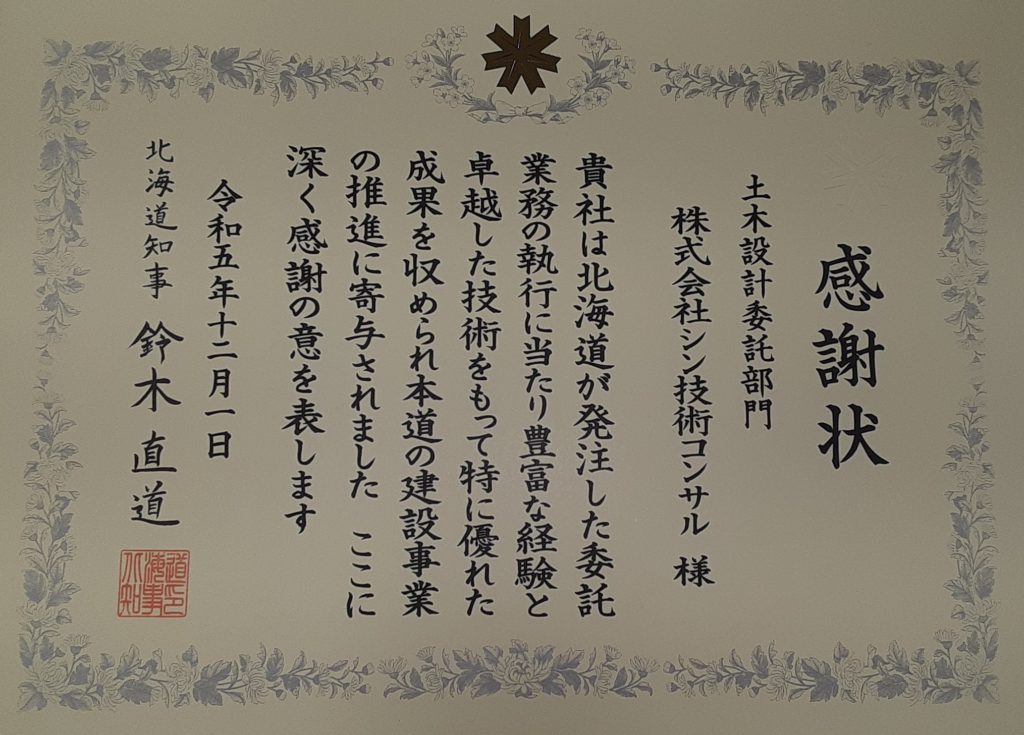 感謝状
土木設計委託部門
株式会社シン技術コンサル 様
貴社は北海道が発注した委託
業務の執行に当たり豊富な経験と
卓越した技術をもって特に優れた
成果を収められ本道の建設事業
の推進に寄与されました ここに
深く感謝の意を表します
令和五年十二月一日
北海道知事 鈴木直道
道印
海事
北知